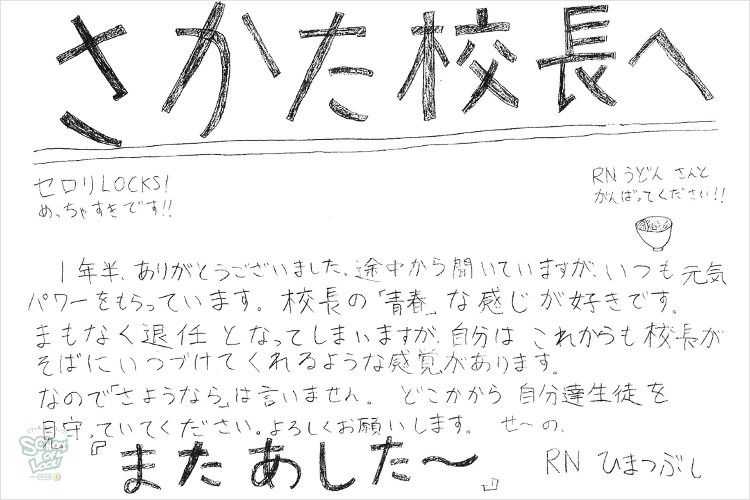 さかた校長へ
セロリLOCKS!
めっちゃすきです!!
RN うどん さんと
がんばってください!!
1年半、ありがとうございました。途中から聞いていますが、いつも元気
パワーをもらっています。校長の「青春」な感じが好きです。
まもなく退任となってしまいますが、自分は これからも校長が
そばにいつづけてくれるような感覚があります。
なので「さようなら」は言いません。 どこかから 自分達生徒を
見守っていてください。よろしくお願いします。 せ〜の、
『またあした〜』
RN ひまつぶし
SCHOOL OF LOCK!